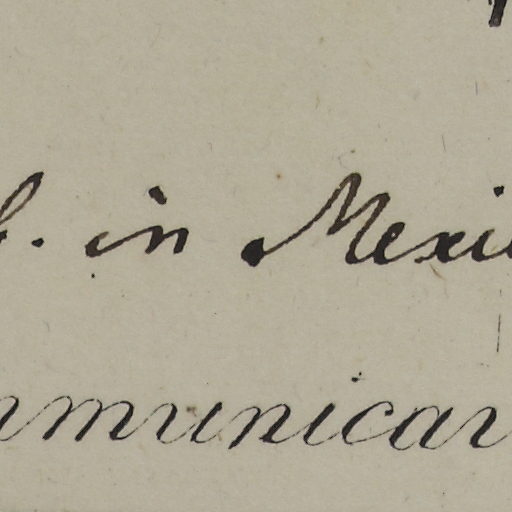 . in Mexi
mmunicar